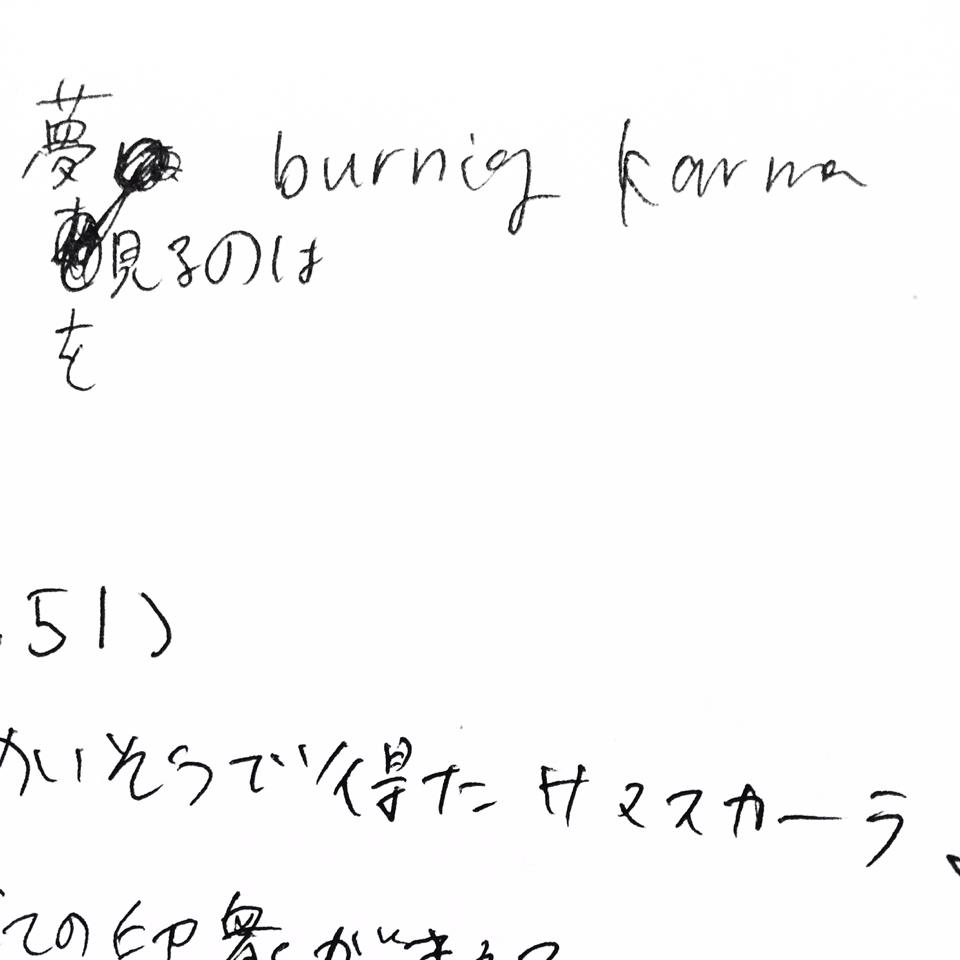 夢 burnig karma
見るのは
を
.51)
かいそうで得たサマスカーラ
ての印象が